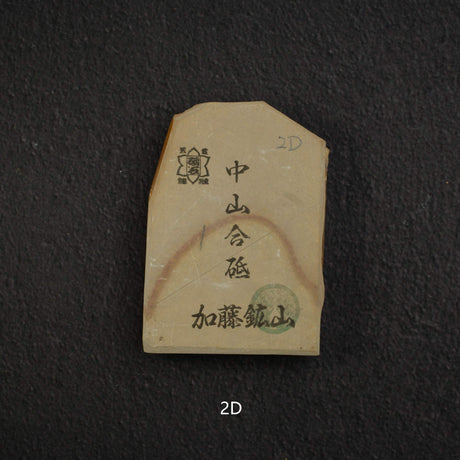 2D
中山合砥
加藤鉱山
2D